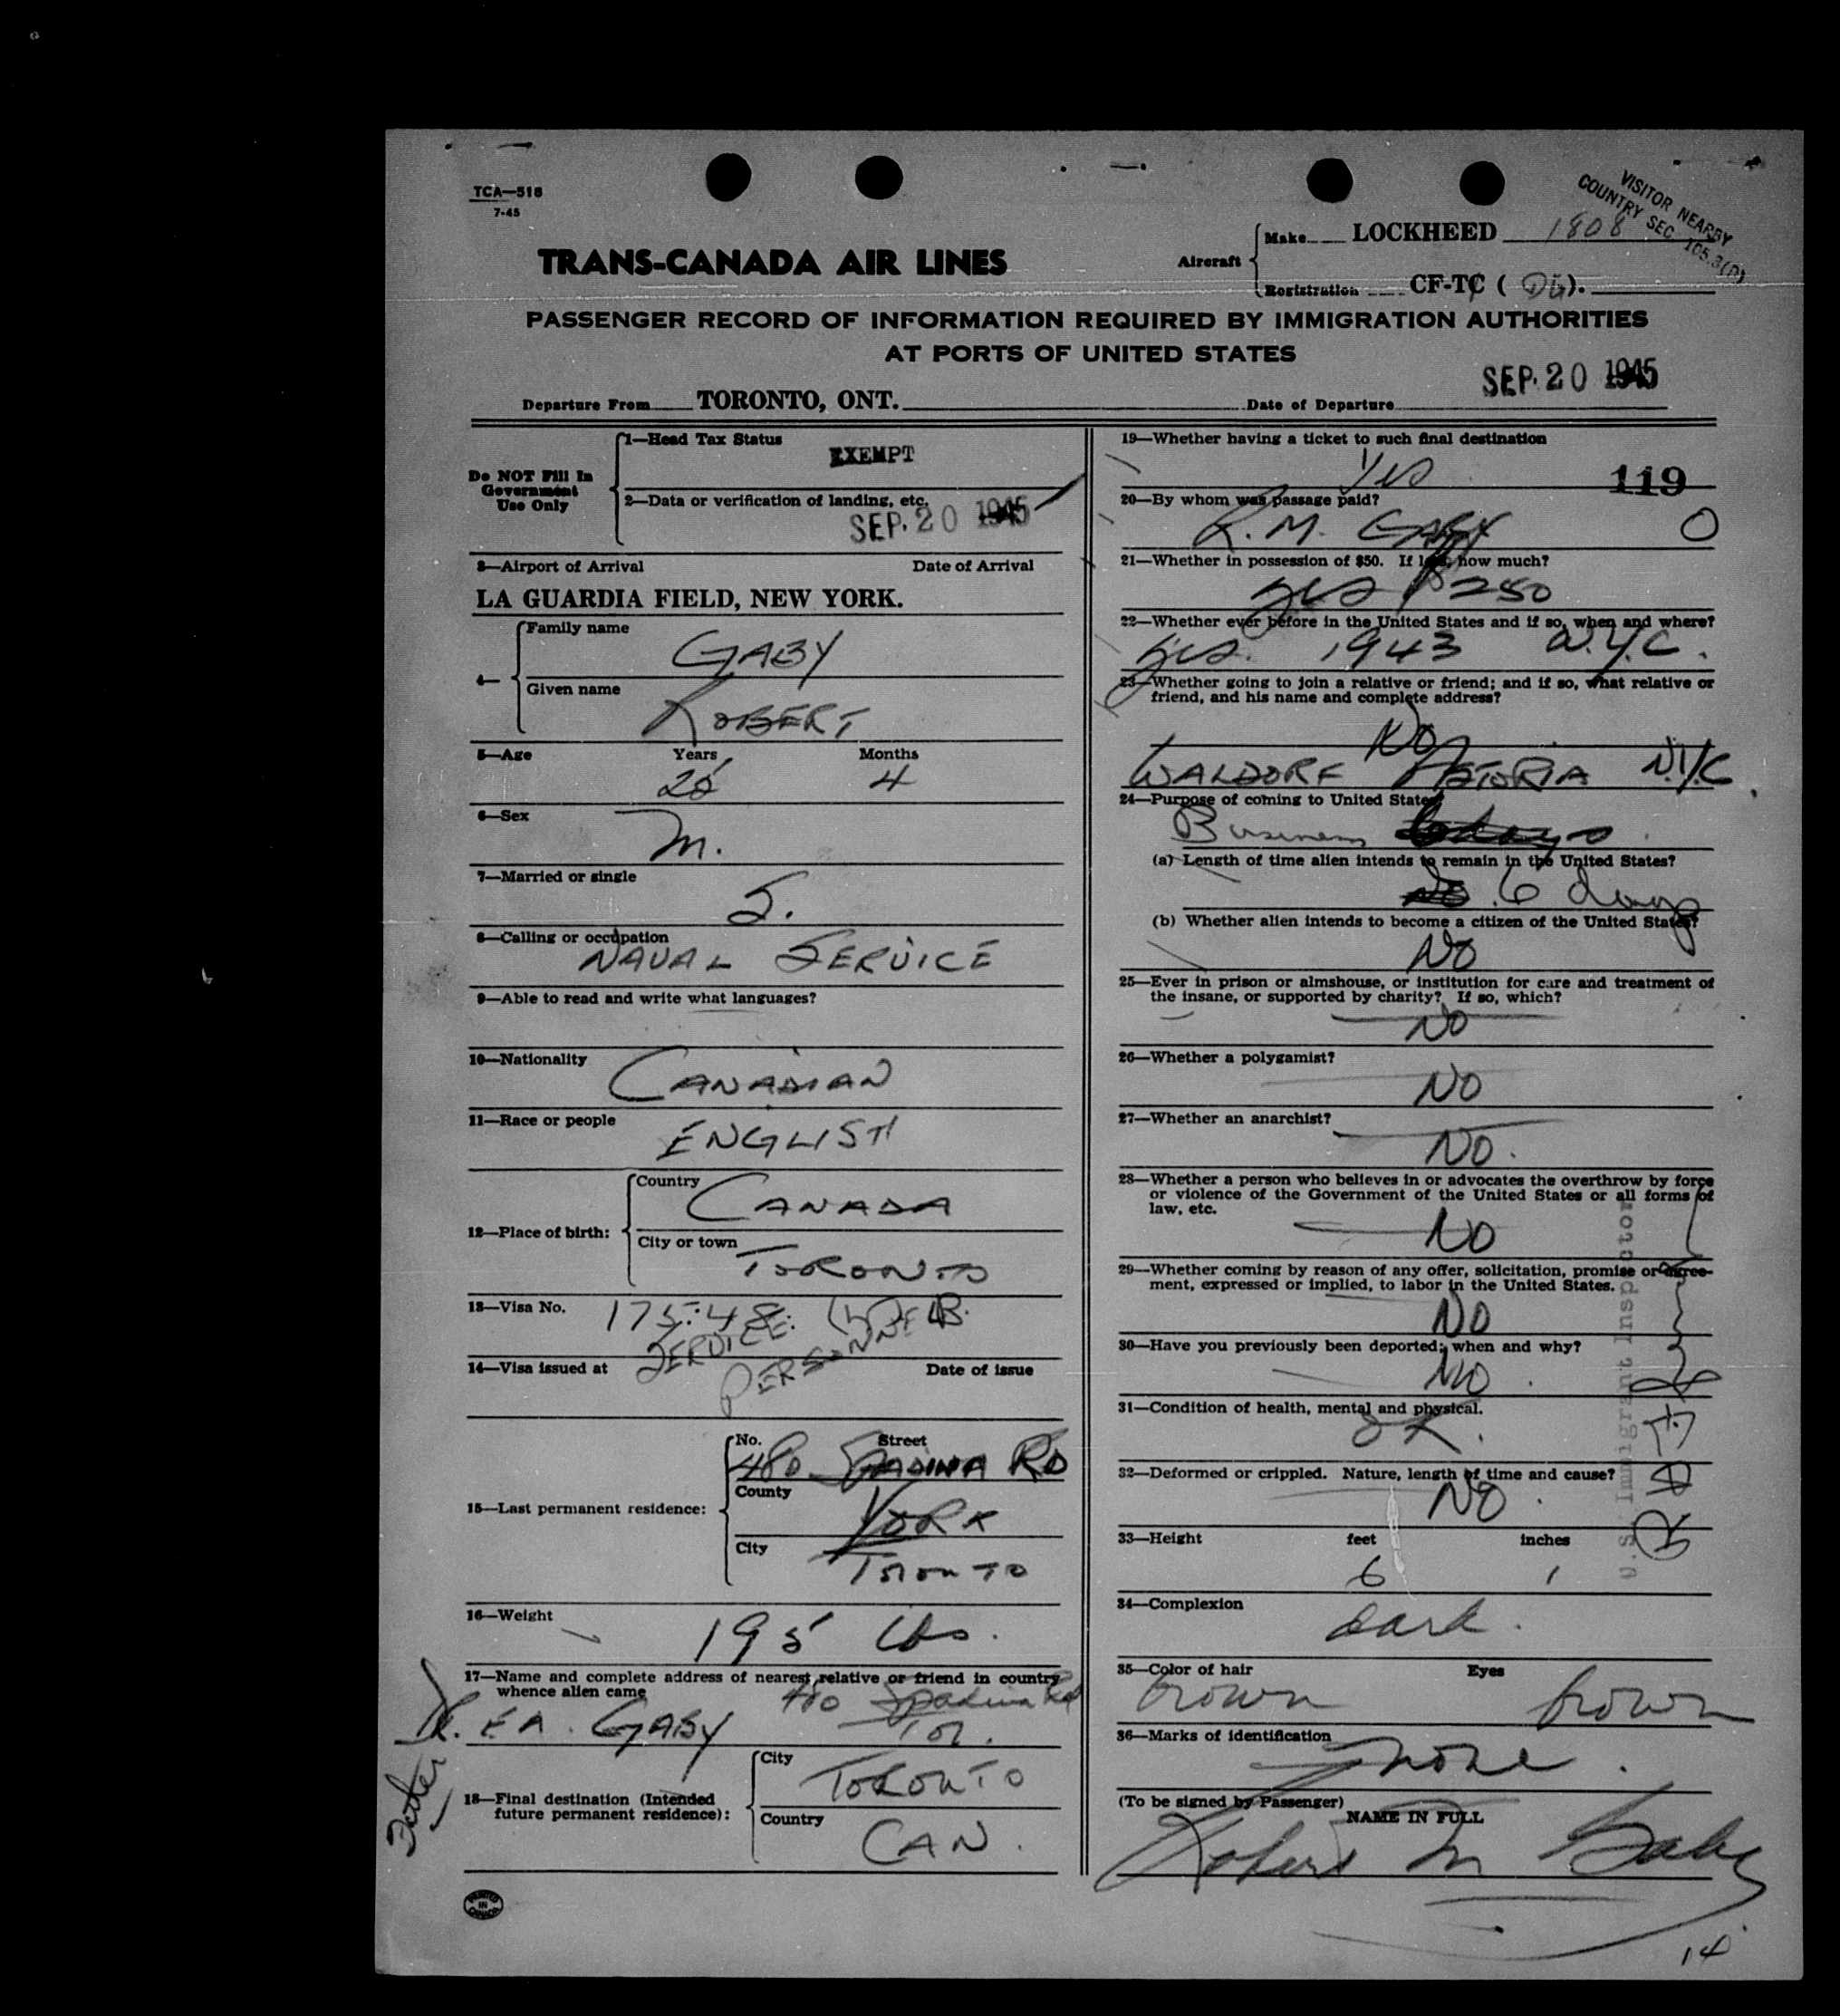 TCA—518
7-45
VISITOR NEARBY
COUNTRY SEC. 105.3(P)
TRANS-CANADA AIR LINES
Aircraft
Make LOCKHEED 1808
Registration CF-TC ( ).
PASSENGER RECORD OF INFORMATION REQUIRED BY IMMIGRATION AUTHORITIES
AT PORTS OF UNITED STATES
Departure From TORONTO, ONT.
Date of Departure SEP. 20 1945
Do NOT Fill In
Government
Use Only
1—Head Tax Status
EXEMPT
2—Data or verification of landing, etc.
SEP. 20 1945
3—Airport of Arrival Date of Arrival
LA GUARDIA FIELD, NEW YORK.
4—
Family name
GABY
Given name
ROBERT
5—Age Years Months
4
6—Sex
M.
7—Married or single
S.
8—Calling or occupation
NAVAL SERVICE
9—Able to read and write what languages?
10—Nationality
CANADIAN
11—Race or people
ENGLISH
12—Place of birth:
Country
CANADA
City or town
TORONTO
13—Visa No. 175.48.
SERVICE
PERSONNEL
14—Visa issued at Date of issue
15—Last permanent residence:
No. Street
480 SPADINA RD
County
YORK
City
TORONTO
16—Weight
195 lbs.
17—Name and complete address of nearest relative or friend in country
whence alien came
480 Spadina Rd
DR. E A. GABY Tor.
Father
18—Final destination (Intended
future permanent residence):
City
TORONTO
Country
CAN.
PRINTED
IN
CANADA
19—Whether having a ticket to such final destination
Yes
119
20—By whom was passage paid?
R. M. GABY
0
21—Whether in possession of $50. If less, how much?
yes $250
22—Whether ever before in the United States and if so, when and where?
yes. 1943 N.Y.C.
23—Whether going to join a relative or friend; and if so, what relative or
friend, and his name and complete address?
No
WALDORF ASTORIA N.Y.C.
24—Purpose of coming to United States
Business
(a) Length of time alien intends to remain in the United States?
6 days
(b) Whether alien intends to become a citizen of the United States?
NO
25—Ever in prison or almshouse, or institution for care and treatment of
the insane, or supported by charity? If so, which?
NO
26—Whether a polygamist?
NO
27—Whether an anarchist?
NO.
28—Whether a person who believes in or advocates the overthrow by force
or violence of the Government of the United States or all forms of
law, etc.
NO
29—Whether coming by reason of any offer, solicitation, promise or agree-
ment, expressed or implied, to labor in the United States.
NO
30—Have you previously been deported; when and why?
NO.
31—Condition of health, mental and physical.
OK.
32—Deformed or crippled. Nature, length of time and cause?
NO.
U.S. Immigrant Inspector
33—Height feet inches
6 1
34—Complexion
dark.
35—Color of hair Eyes
brown brown
36—Marks of identification
none.
(To be signed by Passenger)
NAME IN FULL
Robert M Gaby
14